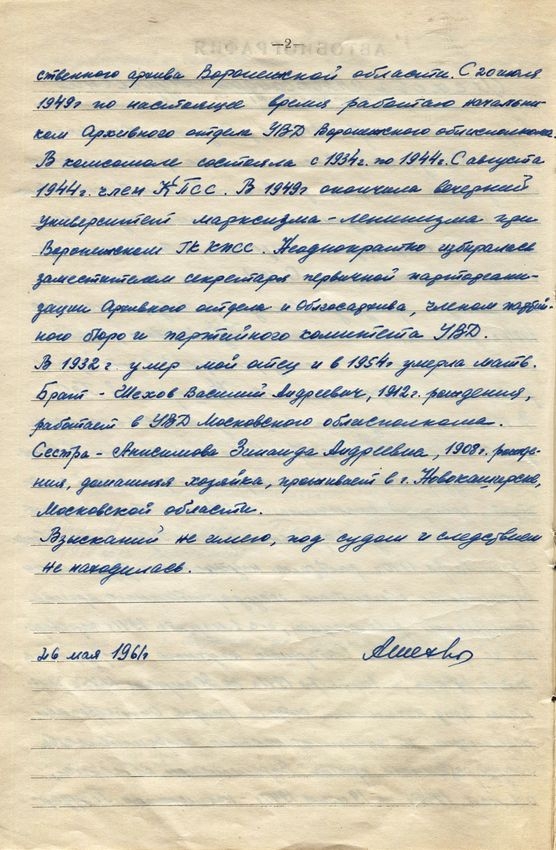 -2-
ственного архива Воронежской области. С 20 июля
1949г по настоящее время работаю начальни-
ком Архивного отдела УВД Воронежского облисполкома.
В комсомоле состояла с 1934г. по 1944г. С августа
1944г. член КПСС. В 1949г окончила вечерний
университет марксизма-ленинизма при
Воронежском ГК КПСС. Неоднократно избиралась
заместителем секретаря первичной парторгани-
зации Архивного отдела и Облгосархива, членом партий-
ного бюро и партийного комитета УВД.
В 1932г. умер мой отец и в 1954г умерла мать.
Брат - Шехов Василий Андреевич, 1912г. рождения,
работает в УВД Московского облисполкома.
Сестра - Анисимова Зинаида Андреевна, 1908г. рожде-
ния, домашняя хозяйка, проживает в г. Новокаширске,
Московской области.
Взысканий не имею, под судом и следствием
не находилась.
26 мая 1961г